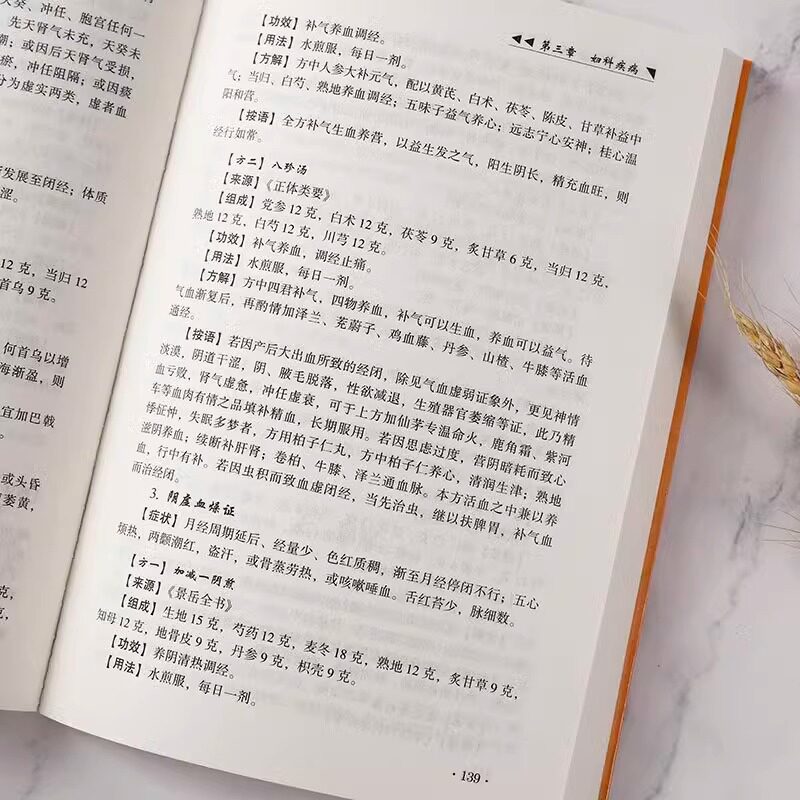 癸、冲任、胞宫任何一
先天肾气未充，天癸未
潮；或因后天肾气受损，
瘀，冲任阻隔；或因痰
分为虚实两类，虚者血
所发展至闭经；体质
涩。
12克，当归12
首乌9克。
何首乌以增
海渐盈，则
宜加巴戟
或头昏
萎黄，
克，
克。
第三章 妇科疾病
【功效】补气养血调经。
【用法】水煎服，每日一剂。
【方解】方中人参大补元气，配以黄芪、白术、茯苓、陈皮、甘草补益中
气；当归、白芍、熟地养血调经；五味子益气养心；远志宁心安神；桂心温
阳和营。
【按语】全方补气生血养营，以益生发之气，阳生阴长，精充血旺，则
经行如常。
【方二】八珍汤
【来源】《正体类要》
【组成】党参12克，白术12克，茯苓9克，炙甘草6克，当归12克，
熟地12克，白芍12克，川芎12克。
【功效】补气养血，调经止痛。
【用法】水煎服，每日一剂。
【方解】方中四君补气，四物养血，补气可以生血，养血可以益气。待
气血渐复后，再酌情加泽兰、茺蔚子、鸡血藤、丹参、山楂、牛膝等活血
通经。
【按语】若因产后大出血所致的经闭，除见气血虚弱证象外，更见神情
淡漠，阴道干涩，阴、腋毛脱落，性欲减退，生殖器官萎缩等证，此乃精
血亏败，肾气虚惫，冲任虚衰，可于上方加仙茅专温命火，鹿角霜、紫河
车等血肉有情之品填补精血，长期服用。若因思虑过度，营阴暗耗而致心
悸怔忡，失眠多梦者，方用柏子仁丸，方中柏子仁养心，清润生津；熟地
滋阴养血；续断补肝肾；卷柏、牛膝、泽兰通血脉。本方活血之中兼以养
血，行中有补。若因虫积而致血虚闭经，当先治虫，继以扶脾胃，补气血
而治经闭。
3. 阴虚血燥证
【症状】月经周期延后、经量少、色红质稠，渐至月经停闭不行；五心
烦热，两颧潮红，盗汗，或骨蒸劳热，或咳嗽唾血。舌红苔少，脉细数。
【方一】加减一阴煎
【来源】《景岳全书》
【组成】生地15克，芍药12克，麦冬18克，熟地12克，炙甘草9克，
知母12克，地骨皮9克，丹参9克，枳壳9克。
【功效】养阴清热调经。
【用法】水煎服，每日一剂。
·139·